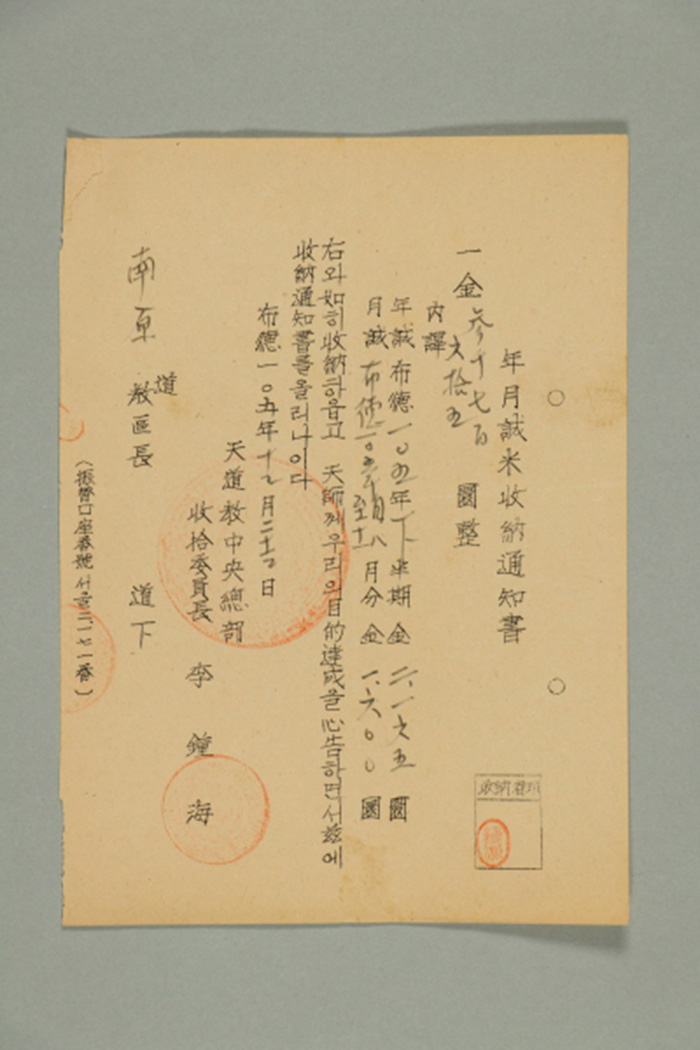 年月誠米收納通知書
一金 參千七百六拾五 圓整
內譯
年誠 布德一〇五年下半期 金 二.一六五 圓
月誠 布德一〇五年 月分 金 一.六〇〇 圓
右와 如히 收納하옵고 天師께 우리의 目的達成을 心告하면서 玆에
收納通知書를 올리나이다
布德一〇五年十二月二十 日
天道敎中央總部
收拾委員長 李鐘海
南原 道 敎區長 道下
(振替口座番號 서울 二一七一番)
收納 項